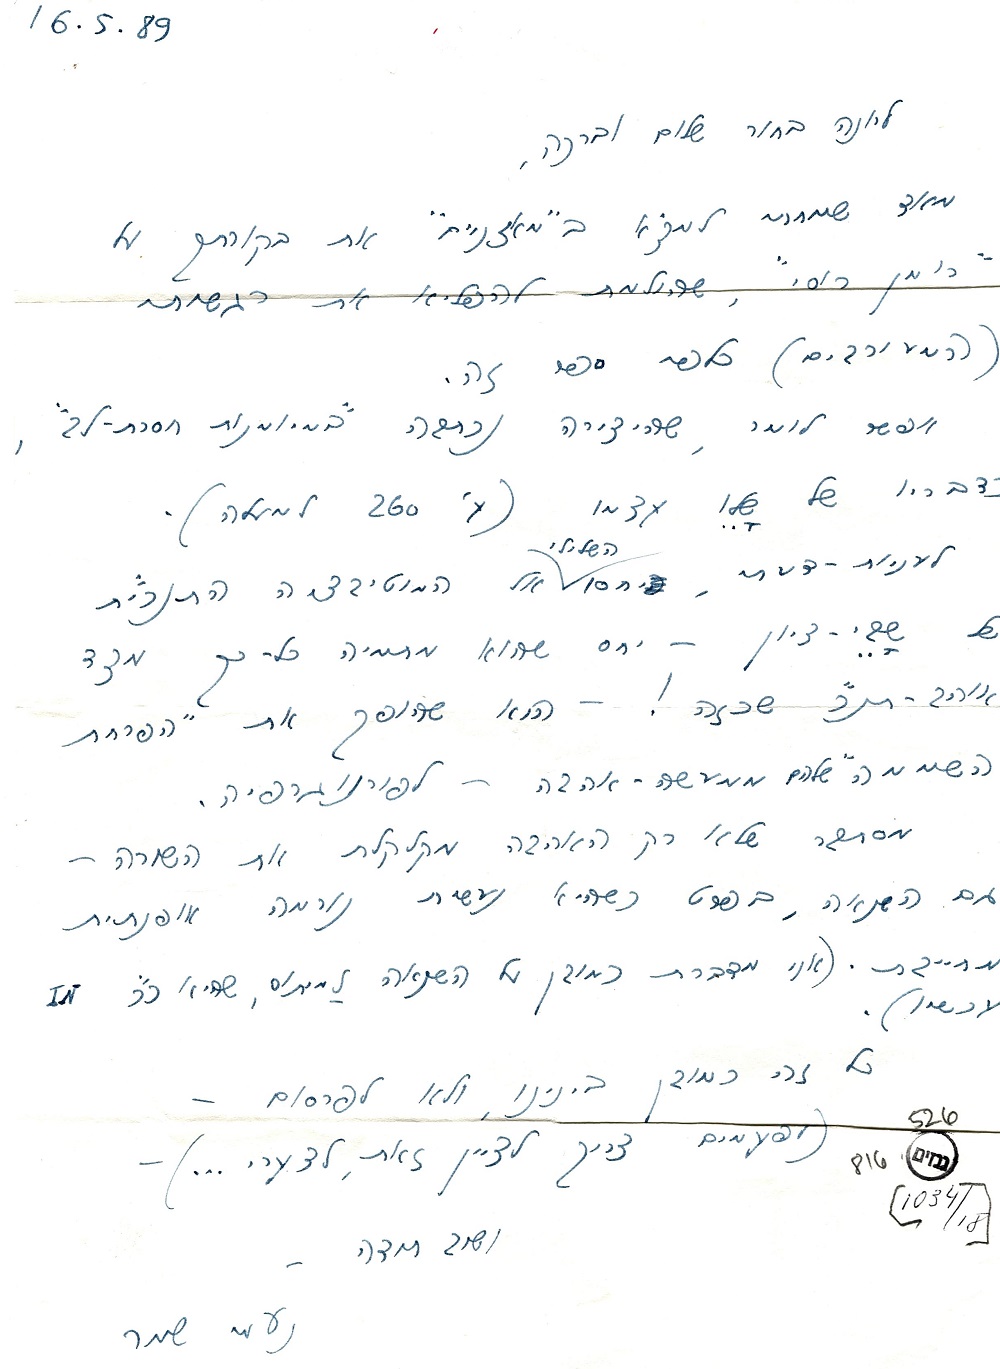 16.5.89
לרונה בחור שלום וברכה,
מאוד שמחתי למצא ב"מאזניים" את בקורתך על
"רומן רוסי", שהולמת להפליא את רגשותי
(המעורבים) כלפי ספר זה.
אפשר לומר, שהיצירה נכתבה "במיומנות חסרת-לב",
כדבריו של שלו עצמו (ע' 260 למעלה).
לעניות-דעתי, יחסו השלילי אל המוטיבציה התנ"כית
של שבי-ציון – יחס שהוא מתמיה כל-כך מצד
אוהב-תנ"כ שכזה! – הוא שהופך את "הפרחת
השממה" שלהם ממעשה-אהבה – לפורנוגרפיה.
מסתבר שלא רק האהבה מקלקלת את השורה –
גם השנאה, בפרט כשהיא נעשית נורמה אופנתית
מחייבת. (אני מדברת כמובן על השנאה למיתוס, שהיא כ"כ IN
עכשיו).
כל זה כמובן בינינו, ולא לפרסום –
(לפעמים צריך לציין זאת, לצערי...) –
ושוב תודה –
נעמי שמר
526
816
גנזים
[1034/18]